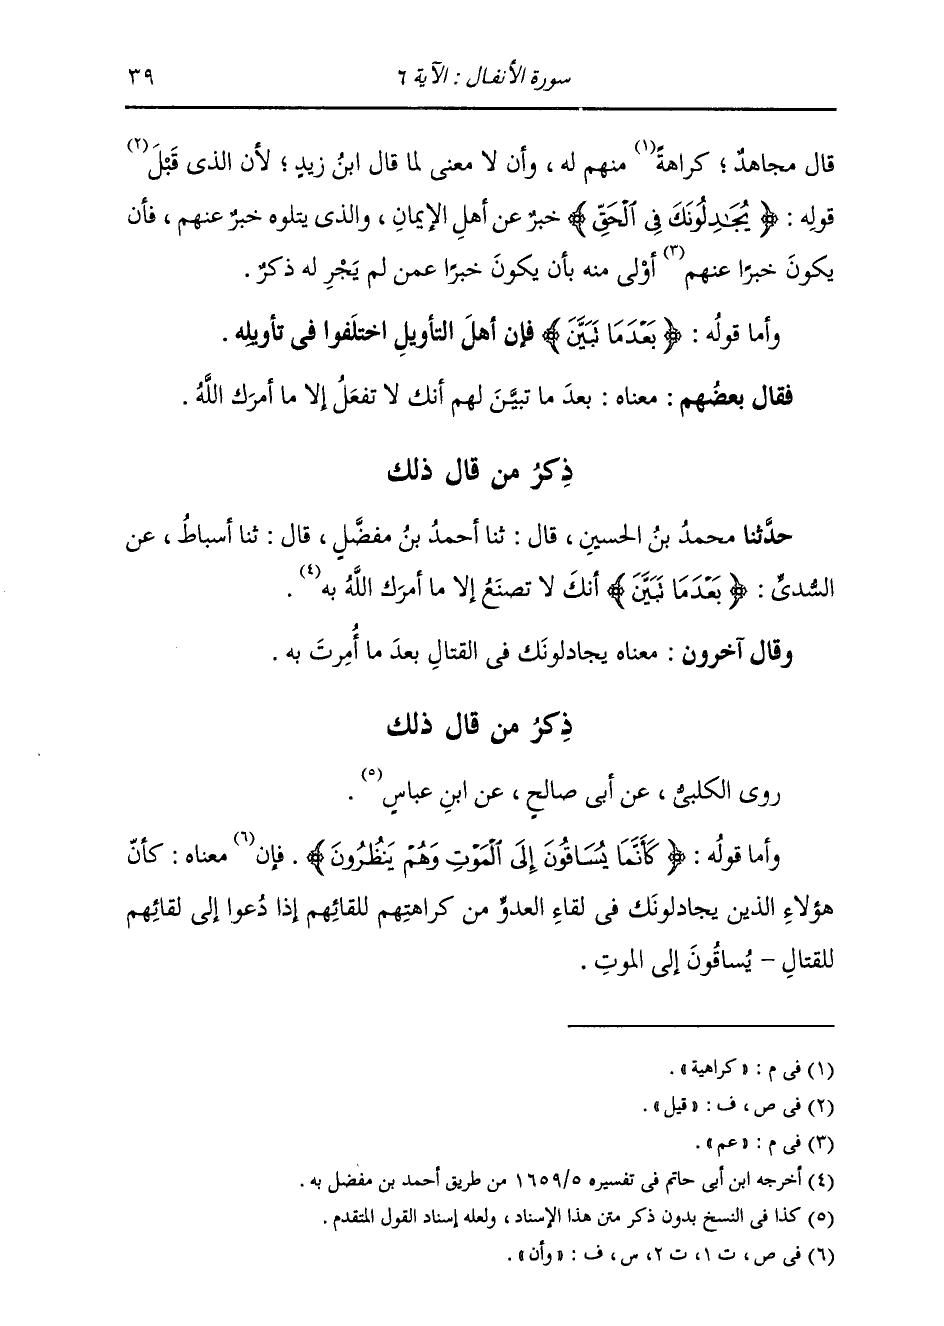 سورة الأنفال : الآية ٦ ٣٩
قال مجاهدٌ ؛ كراهةً(١) منهم له ، وأن لا معنى لما قال ابنُ زيدٍ ؛ لأن الذى قَبْلَ(٢)
قولِه : ﴿ يُجَٰدِلُونَكَ فِى ٱلْحَقِّ ﴾ خبرٌ عن أهلِ الإيمانِ ، والذى يتلوه خبرٌ عنهم ، فأن
يكونَ خبرًا عنهم(٣) أوْلى منه بأن يكونَ خبرًا عمن لم يَجْرِ له ذكرٌ .
وأما قولُه : ﴿ بَعْدَمَا نَبَيَّنَ ﴾ فإن أهلَ التأويلِ اختلَفوا فى تأويلِه .
فقال بعضُهم : معناه : بعدَ ما تبيَّنَ لهم أنك لا تفعَلُ إلا ما أمرَك اللَّهُ .
ذِكرُ من قال ذلك
حدَّثنا محمدُ بنُ الحسينِ ، قال : ثنا أحمدُ بنُ مفضَّلٍ ، قال : ثنا أسباطُ ، عن
السُّدىِّ : ﴿ بَعْدَمَا نَبَيَّنَ ﴾ أنكَ لا تصنَعُ إلا ما أمرَك اللَّهُ به(٤) .
وقال آخرون : معناه يجادلونَك فى القتالِ بعدَ ما أُمِرتَ به .
ذِكرُ من قال ذلك
روى الكلبىُّ ، عن أبى صالحٍ ، عن ابنِ عباسٍ(٥) .
وأما قولُه : ﴿ كَأَنَّمَا يُسَاقُونَ إِلَى ٱلْمَوْتِ وَهُمْ يَنظُرُونَ ﴾ . فإن(٦) معناه : كأنّ
هؤلاءِ الذين يجادلونَك فى لقاءِ العدوِّ من كراهتِهم للقائِهم إذا دُعوا إلى لقائِهم
للقتالِ - يُساقُونَ إلى الموتِ .
(١) فى م : « كراهية » .
(٢) فى ص ، ف : « قيل » .
(٣) فى م : « عم » .
(٤) أخرجه ابن أبى حاتم فى تفسيره ١٦٥٩/٥ من طريق أحمد بن مفضل به .
(٥) كذا فى النسخ بدون ذكر متن هذا الإسناد ، ولعله إسناد القول المتقدم .
(٦) فى ص ، ت ١، ت ٢، س ، ف : « وأن » .